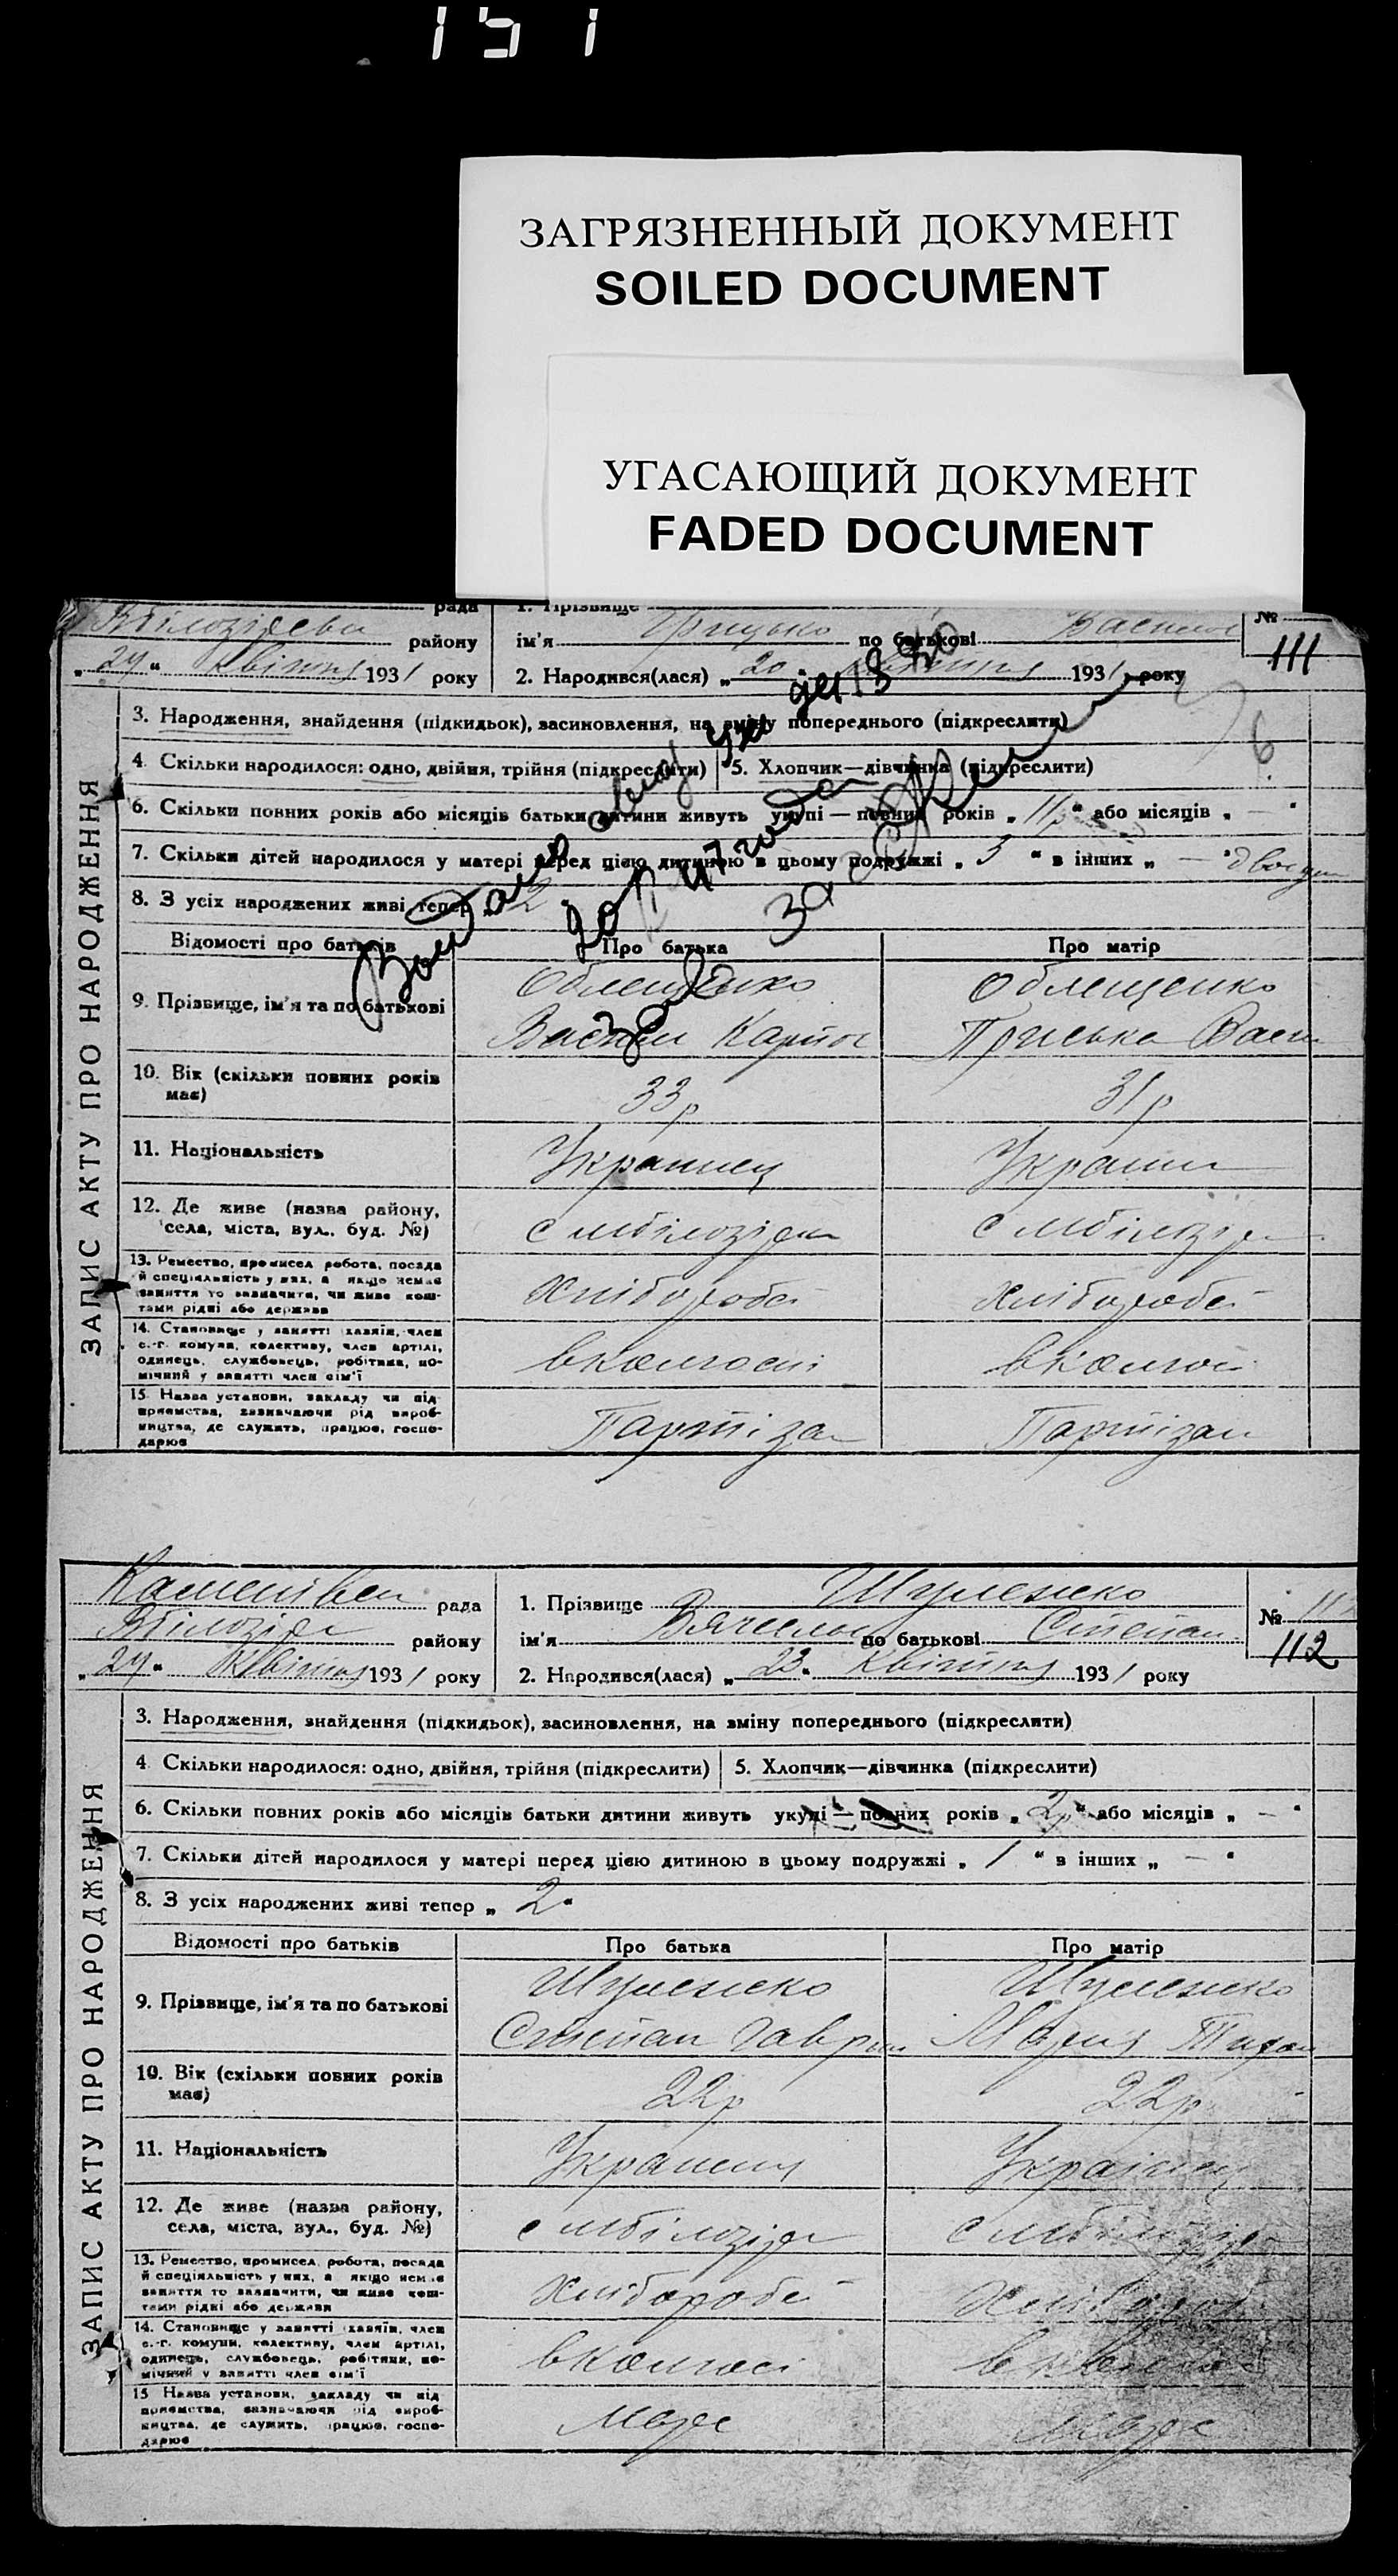 151
ЗАГРЯЗНЕННЫЙ ДОКУМЕНТ
SOILED DOCUMENT
УГАСАЮЩИЙ ДОКУМЕНТ
FADED DOCUMENT
рада 1. Прізвище №
району ім'я Грицько по батькові Васил 111
„ 24 “ Квітня 1931 року 2. Народився(лася) „ 20 “ 1931 року
ЗАПИС АКТУ ПРО НАРОДЖЕННЯ
3. Народження, знайдення (підкидьок), засиновлення, на зміну попереднього (підкреслити)
6
4 Скільки народилося: одно, двійня, трійня (підкреслити) 5. Хлопчик—дівчинка (підкреслити)
6. Скільки повних років або місяців батьки дитини живуть укупі — повних років „ 11р “ або місяців „ — “
7. Скільки дітей народилося у матері перед цією дитиною в цьому подружжі „ 3 “ в інших „ — “
8. З усіх народжених живі тепер „ 2 “
Відомості про батьків Про батька Про матір
9. Прізвище, ім'я та по батькові Облещенко Облещенко
Васил Карпов Приська Васи
10. Вік (скільки повних років має) 33р 31р
11. Національність Украинец Украин
12. Де живе (назва району, села, міста, вул., буд. №) с мбілозірка с мбілозір
13. Ремество, промисел робота, посада
й спеціяльність у них, а якщо немає
заняття то зазначити, чи живе кош-
тами рідні або держави
хлібороб хлібороб
14. Становище у занятті хазяїн, член
с.-г. комуни, колективу, член артілі,
одинець, службовець, робітник, по-
мічний у занятті член сім'ї
вколгоспі вколгос
15 Назва установи, закладу чи під-
приємства, зазначаючи рід вироб-
ництва, де служить, працює, госпо-
дарює
Партізан Партізан
рада 1. Прізвище Шуленко №
району ім'я Вячеслав по батькові Степан 112
„ 24 “ Квітня 1931 року 2. Народився(лася) „ 23 “ Квітня 1931 року
ЗАПИС АКТУ ПРО НАРОДЖЕННЯ
3. Народження, знайдення (підкидьок), засиновлення, на зміну попереднього (підкреслити)
4 Скільки народилося: одно, двійня, трійня (підкреслити) 5. Хлопчик—дівчинка (підкреслити)
6. Скільки повних років або місяців батьки дитини живуть укупі — повних років „ 2р “ або місяців „ — “
7. Скільки дітей народилося у матері перед цією дитиною в цьому подружжі „ 1 “ в інших „ — “
8. З усіх народжених живі тепер „ 2 “
Відомості про батьків Про батька Про матір
9. Прізвище, ім'я та по батькові Шуленко Шуленко
Степан Гаврил Мария
10. Вік (скільки повних років має) 22р 22р
11. Національність Украинец Украінец
12. Де живе (назва району, села, міста, вул., буд. №) с мбілозірк с мбілозір
13. Ремество, промисел, робота, посада
й спеціяльність у них, а якщо немає
заняття то зазначити, чи живе кош-
тами рідні або держави
хлібороб хлібороб
14. Становище у занятті хазяїн, член
с.-г. комуни, колективу, член артілі,
одинець, службовець, робітник, по-
мічний у занятті член сім'ї
вколгосі вколгос
15 Назва установи, закладу чи під-
приємства, зазначаючи рід вироб-
ництва, де служить, працює, госпо-
дарює